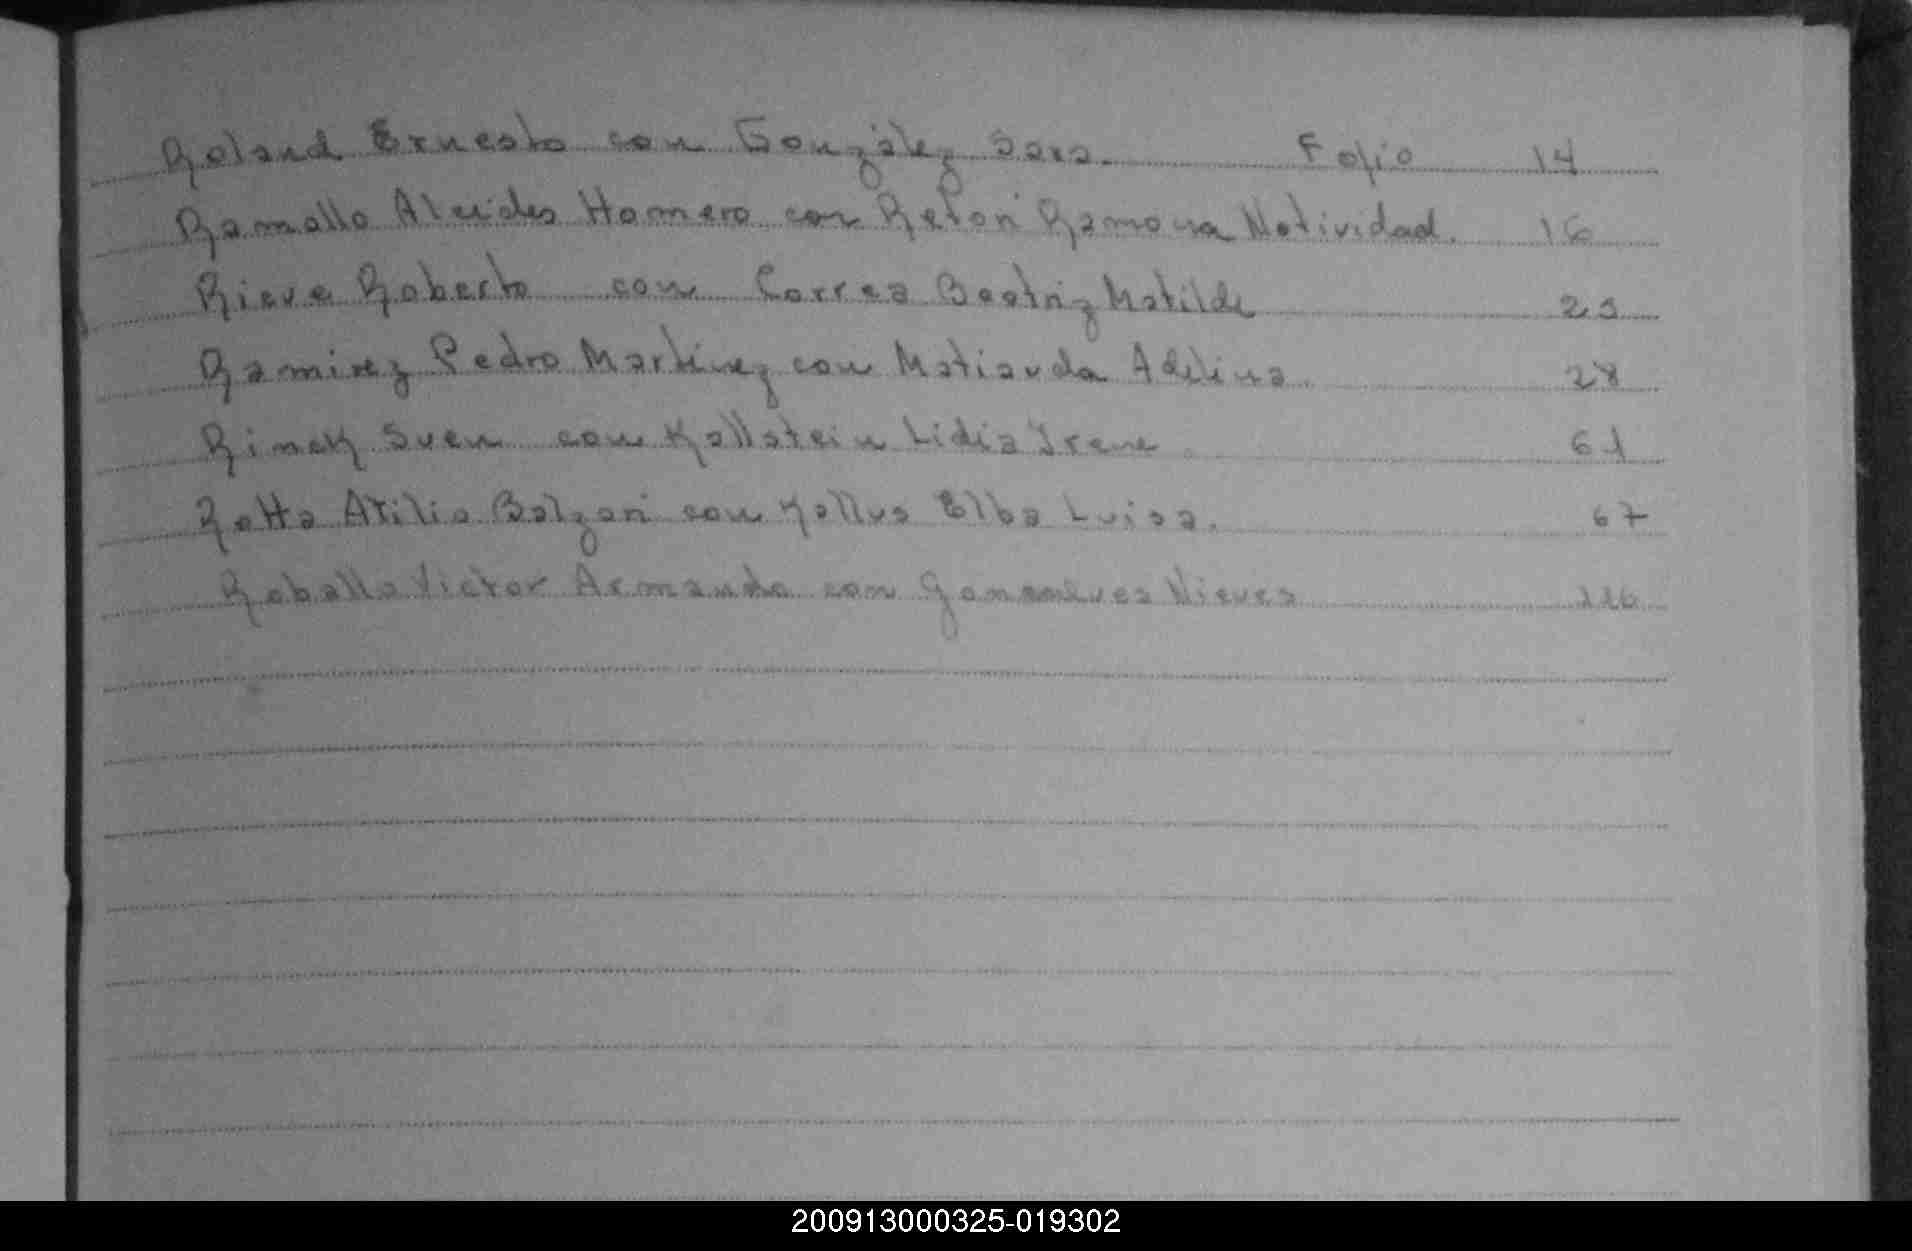 Roland Ernesto con González Sara. Folio 14
Ramallo Alcides Homero con Retori Ramona Natividad. 16
Rieve Roberto con Correa Beatriz Matilde 23
Ramirez Pedro Martínez con Matiauda Adelina. 28
Rinck Sven con Kallstein Lidia Irene 61
Rotta Atilio Balzari con Kallus Elba Luisa. 67
Roballo Victor Armando con Nieves 116
200913000325-019302